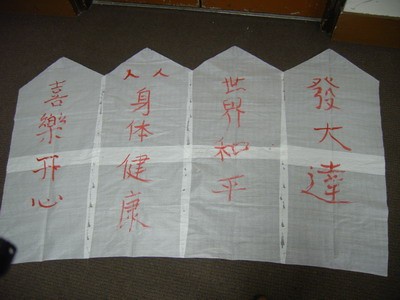 發大達
世界和平
人人
身体健康
喜樂开心